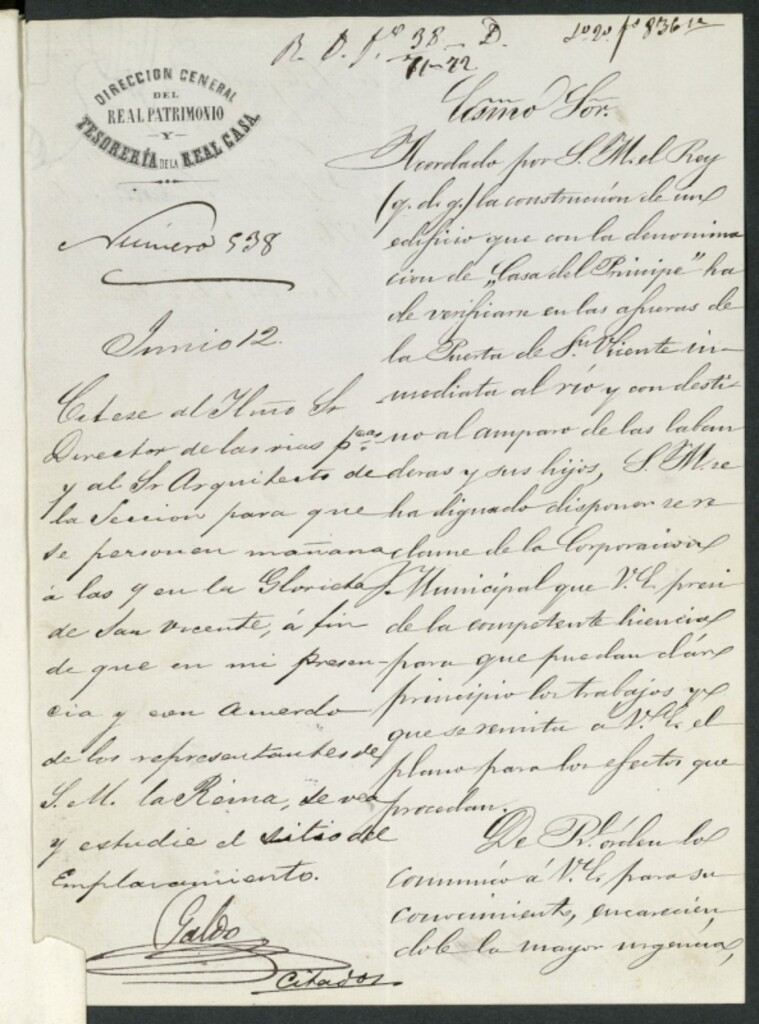 R. O. f.º 38 - D.
71-72
DIRECCION GENERAL
DEL
REAL PATRIMONIO
Y
TESORERÍA DE LA REAL CASA
Número 538
Junio 12.
Citese al Ilmo Sr
Director de las vias pcas
y al Sr Arquitecto de
la Seccion para que
se personen mañana
á las 9 en la Glorieta
de San Vicente, á fin
de que en mi presen-
cia y con acuerdo
de los representantes de
S. M. la Reina, se vea
y estudie el sitio del
Emplazamiento.
Galdo
Citados
Exmo Sor.
Acordado por S. M. el Rey
(q. d. g.) la construcción de un
edificio que con la denomina
cion de „Casa del Principe" ha
de verificarse en las afueras de
la Puerta de Sn Vicente in-
mediata al río y con desti-
no al amparo de las laban
deras y sus hijos, S. M. se
ha dignado disponer se re
clame de la Corporacion
Municipal que V. E. presi
de la competente licencia
para que puedan dár
principio los trabajos y
que se remita a V. E. el
plano para los efectos que
procedan.
De Rl. órden lo
comunico á V. E. para su
conocimiento, encarecien
dole la mayor urgencia,